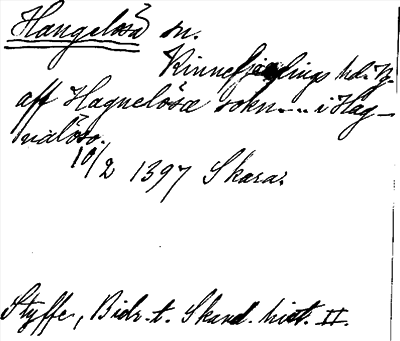 Hangelösa sn.
Kinnefjerdings hd. Vg.
aff Hagnelösa sokn... i Hag-
nalöso.
10/2 1397 Skara.
Styffe, Bidr. t. Skand. hist. II.